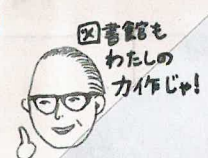 図書館も
わたしの
力作じゃ!